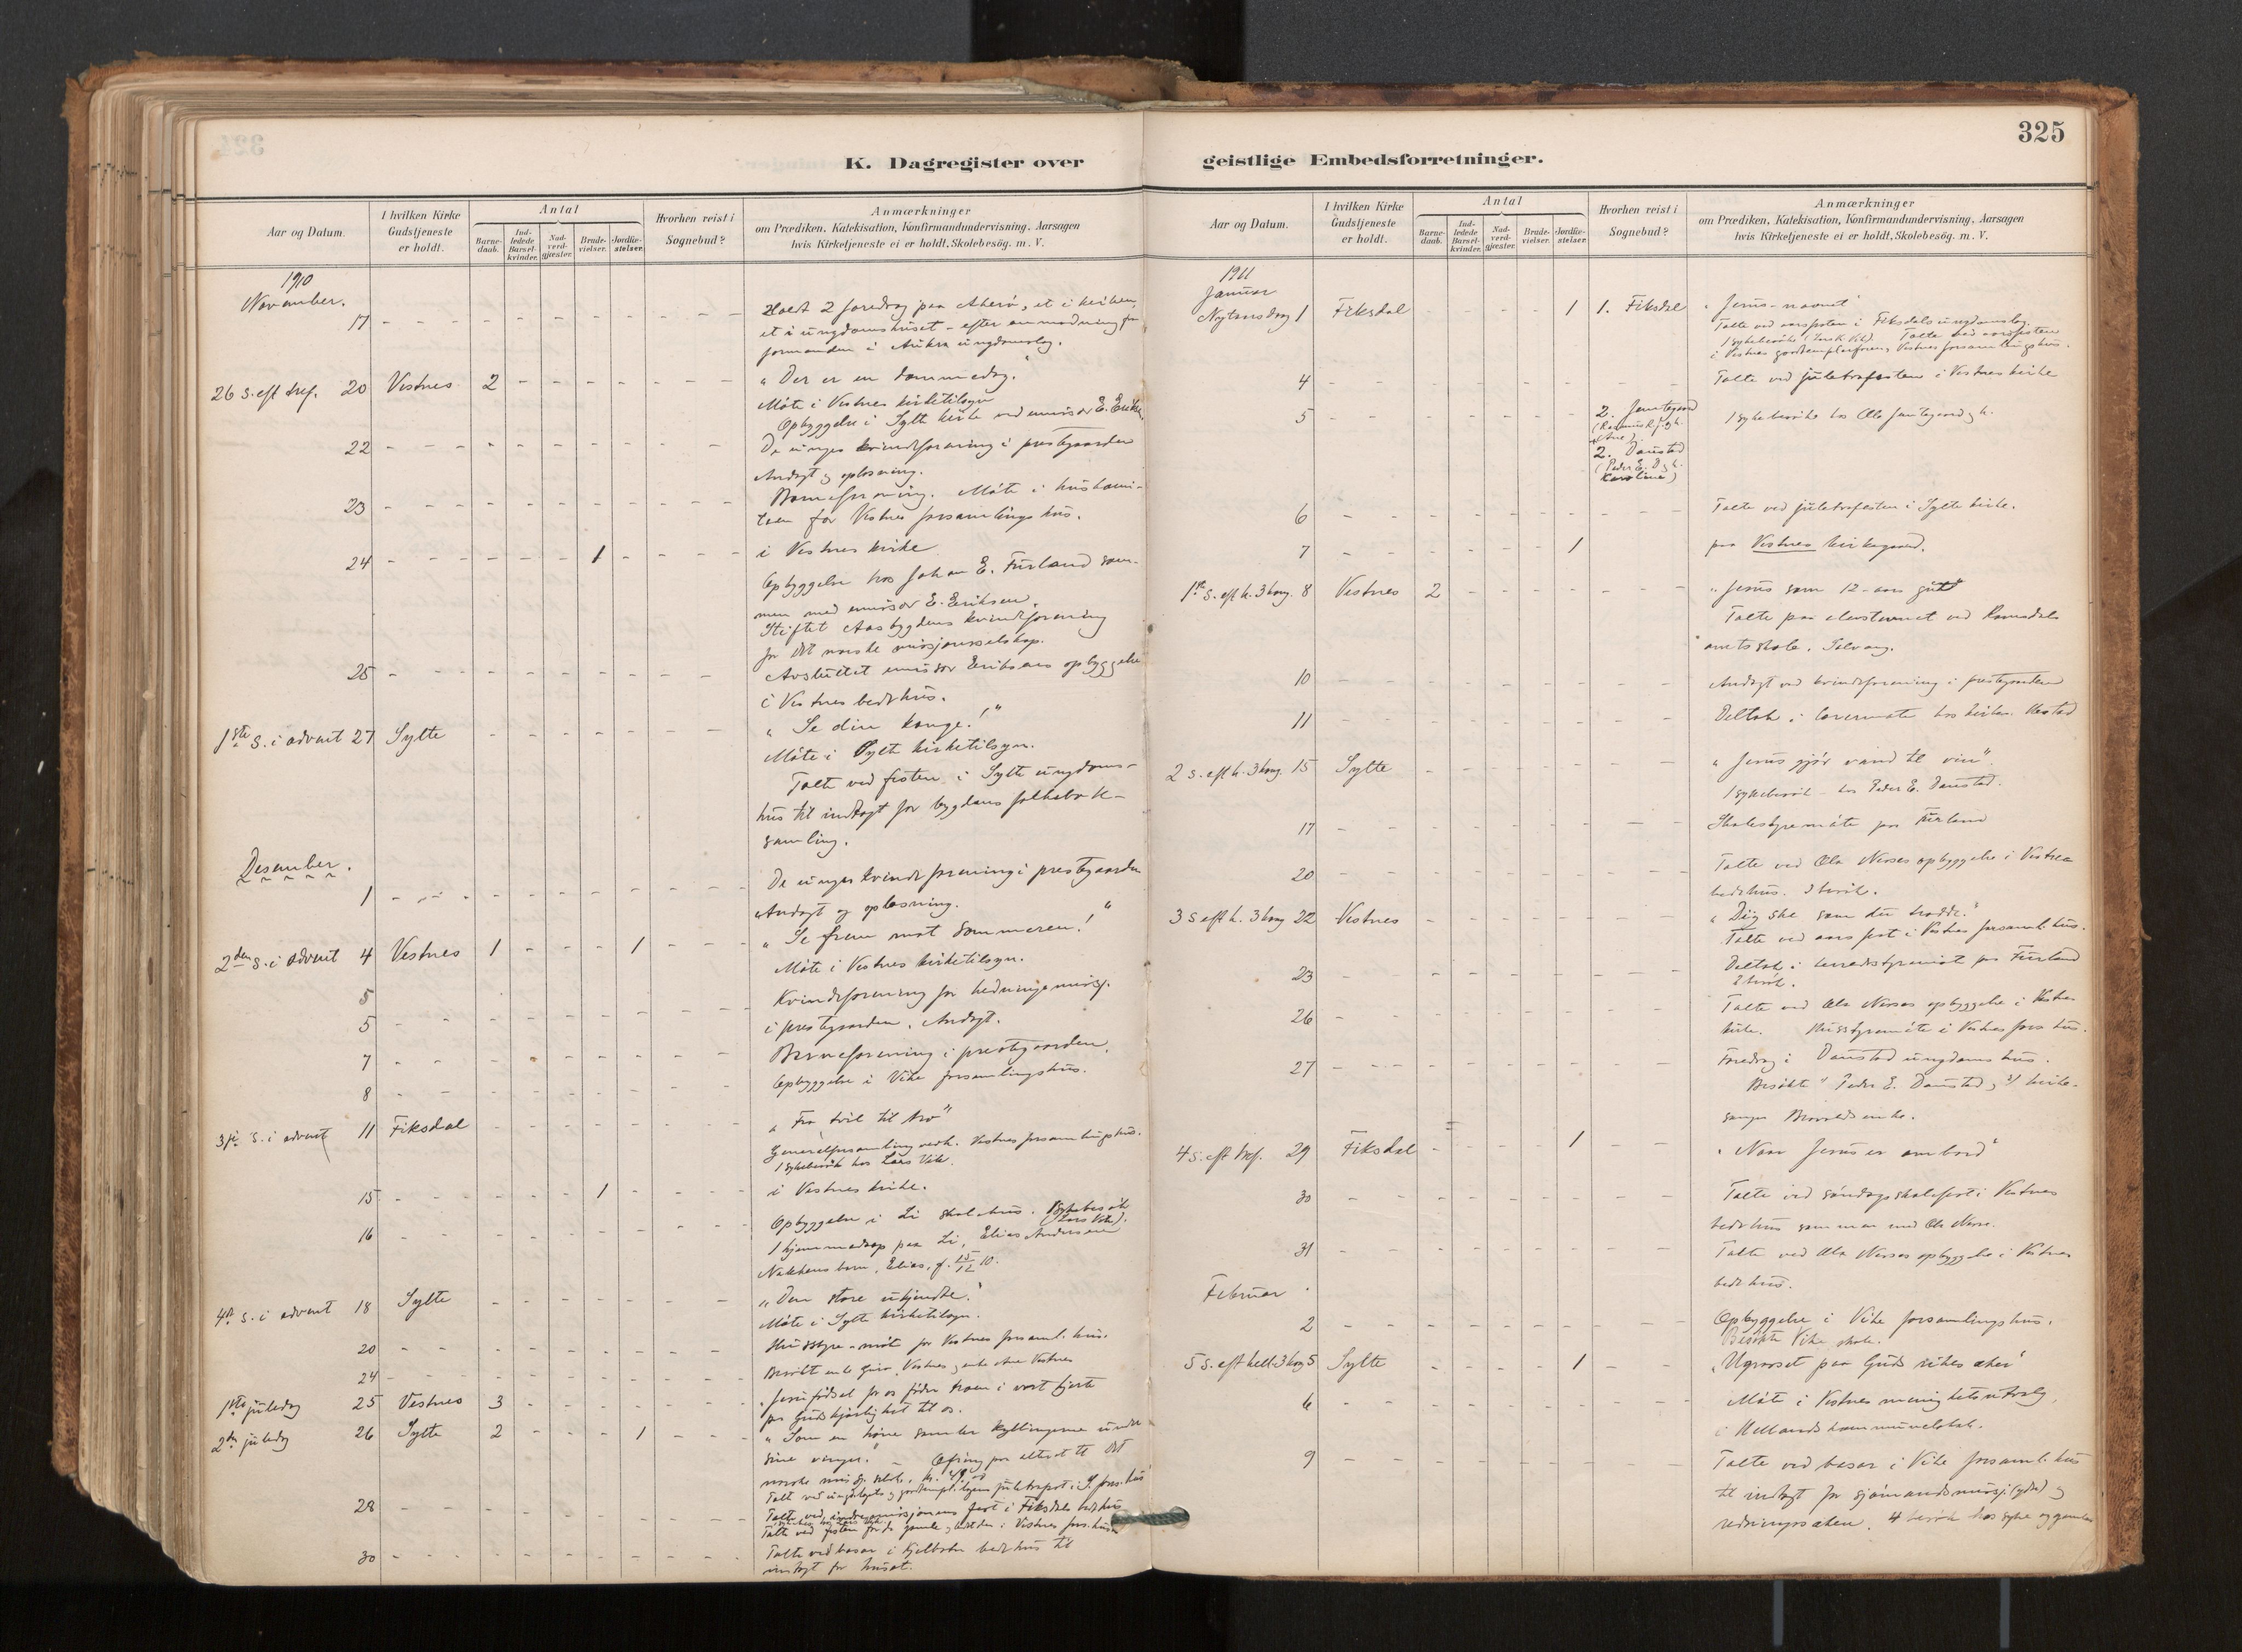 325
K. Dagregister over geistlige Embedsforretninger.
Aar og Datum.
I hvilken Kirke Gudstjeneste er holdt.
Antal
Barne-daab.
Ind-ledede Barsel-kvinder.
Nad-verd-gjæster.
Brude-vielser.
Jordfæ-stelser.
Hvorhen reist i Sognebud?
Anmærkninger
om Prædiken, Katekisation, Konfirmandundervisning, Aarsagen
hvis Kirketjeneste ei er holdt, Skolebesög. m. V.
1910
November.
17 Holdt 2 foredrag paa Akerø, et i kirken,
et i ungdomshuset - efter anmodning fra
formanden i Aukra ungdomslag.
26 s. eft tref. 20 Vestnes 2 „Der er en dommedag.“
Møte i Vestnes kirketilsyn
Opbyggelse i Sylte kirke ved emissær E. Eriksen
22 De unges kvindeforening i prestegaarden
Andagt og oplæsning.
23 Barneforening. Møte i huskomi-
teen for Vestnes forsamlingshus.
24 1 i Vestnes kirke
Opbyggelse hos Johan E. Furland sam-
men med emissær E. Eriksen.
Stiftet Aasbygdens kvindeforening
for det norske misjonsselskap.
25 Avsluttet emissær Eriksens opbyggelse
i Vestnes bedehus.
1ste s. i advent 27 Sylte „Se din konge!“
Møte i Sylte kirketilsyn.
Talte ved festen i Sylte ungdoms-
hus til indtægt for bygdens folkebok-
samling.
Desember.
1 De unges kvindeforening i prestegaarden
Andagt og oplæsning.
2den s. i advent 4 Vestnes 1 1 „Se frem mot sommeren!“
Møte i Vestnes kirketilsyn.
5 Kvindeforening for hedningemisj.
5 i prestegaarden. Andagt.
7 Barneforening i prestegaarden.
8 Opbyggelse i Vike forsamlingshus.
3je s. i advent 11 Fiksdal „Fra tvil til tro“
Generalforsamling vedk. Vestnes forsamlingshus.
1 sykebesøk hos Lars Vike.
15 1 i Vestnes kirke.
16 Opbyggelse i Li skolehus. Sykebesøk
(Lars Vike).
1 hjemmedaap paa Li, Elias Andersen
Nakkens barn, Elias, f. 15/12 10.
4de s. i advent 18 Sylte „Den store ukjendte.“
Møte i Sylte kirketilsyn.
20 Husstyre-møte for Vestnes forsaml. hus.
24 Besøkt enke Vestnes, enke Ane Vestnes
1ste juledag 25 Vestnes 3 Jesu fødsel for os føder troen i vort hjerte
paa Guds kjærlighet til os.
2den juledag 26 Sylte 2 1 „Som en høne samler kyllingerne under
sine vinger.“ - Ofring paa alteret til det
norske misj. selsk.
28 Talte ved indremissjonens fest i Fiksdals bedehus
Talte ved festen for de gamle i Vestnes fors. hus
30 Talte ved basar i Kjelbotn bedehus til
indtægt for huset.
Aar og Datum.
I hvilken Kirke Gudstjeneste er holdt.
Antal
Barne-daab.
Ind-ledede Barsel-kvinder.
Nad-verd-gjæster.
Brude-vielser.
Jordfæ-stelser.
Hvorhen reist i Sognebud?
Anmærkninger
om Prædiken, Katekisation, Konfirmandundervisning, Aarsagen
hvis Kirketjeneste ei er holdt, Skolebesög. m. V.
1911
Januar
Nytaarsdag 1 Fiksdal 1 1. Fiksdal „Jesus-navnet“
Talte ved aarsfesten i Fiksdals ungdomslag.
1 sykebesøk Talte ved aarsfesten
i Vestnes goodtemplarforen., Vestnes forsamlingshus.
4 Talte ved juletræfesten i Vestnes kirke
5 2. Jemtegaard 1 sykebesøk hos Ola Jemtegaard
2. Daustad
(Peder E. D. og h.
Karoline)
6 Talte ved juletræfesten i Sylte kirke.
7 1 paa Vestnes kirkegaard.
1ste s. eft h. 3 kong. 8 Vestnes 2 „Jesus som 12-aars gut“
Talte paa elevstevnet ved Romsdals
amtsskole, Solvang.
10 Andagt ved kvindeforening i prestegaarden
11 Deltok i lærermøte hos kirkes. Kostad
2 s. eft h. 3 kong. 15 Sylte „Jesus gjør vand til vin“.
1 sykebesøk - hos Peder E. Daustad.
17 Skolestyremøte paa Furland
20 Talte ved Ola Nerses opbyggelse i Vestnes
bedehus. 3 besøk.
3 s eft h. 3 kong 22 Vestnes „Dig ske som du trodde.“
Talte ved aarsfest i Vestnes forsaml. hus.
23 Deltok i herredsstyremøte paa Furland
2 besøk.
26 Talte ved Ola Nerses opbyggelse i Vestnes
kirke. Husstyremøte i Vestnes fors hus.
27 Foredrag i Daustad ungdomshus.
Besøkte Peder E. Daustad, kirke-
sanger
4 s. eft tref. 29 Fiksdal 1 „Naar Jesus er ombord“
30 Talte ved søndagsskolefest i Vestnes
bedehus sammen med Ola Nerse.
31 Talte ved Ola Nerses opbyggelse i Vestnes
bedehus.
Februar
2 Opbyggelse i Vike forsamlingshus.
Besøkte Vike skole.
5 s. eft hell. 3 kong 5 Sylte 1 „Ugræsset paa Guds rikes aker“
6 Møte i Vestnes menighetsutvalg,
i Hellands kommunelokal.
9 Talte ved basar i Vike forsaml. hus
til indtægt for sjømandsmisj. og
redningssaken. 4 besøk hos syke og gamle